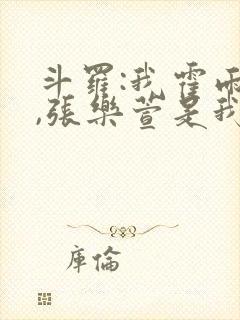 斗羅:我霍雨
,張樂萱是我
庫倫